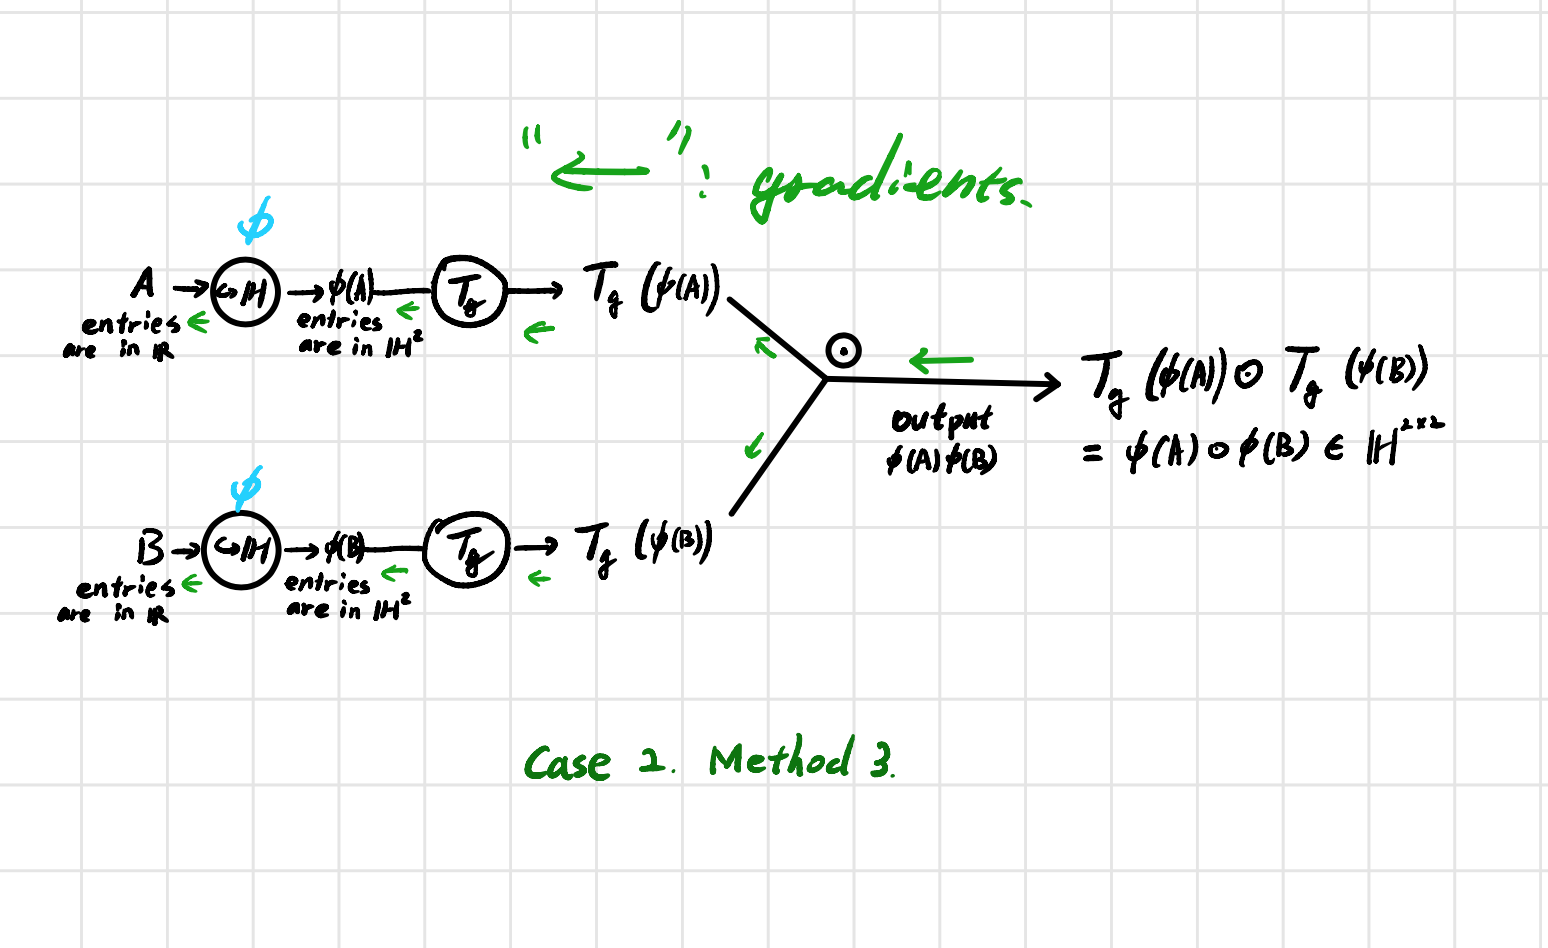 "←" : gradients.
ϕ
A → ↪ℍ → ϕ(A) T_g → T_g (ϕ(A))
entries are in ℝ
entries are in ℍ²
⊙
output
ϕ(A) ϕ(B)
T_g (ϕ(A)) ⊙ T_g (ϕ(B))
= ϕ(A) ⊙ ϕ(B) ∈ ℍ^{2×2}
ϕ
B → ↪ℍ → ϕ(B) T_g → T_g (ϕ(B))
entries are in ℝ
entries are in ℍ²
Case 2. Method 3.